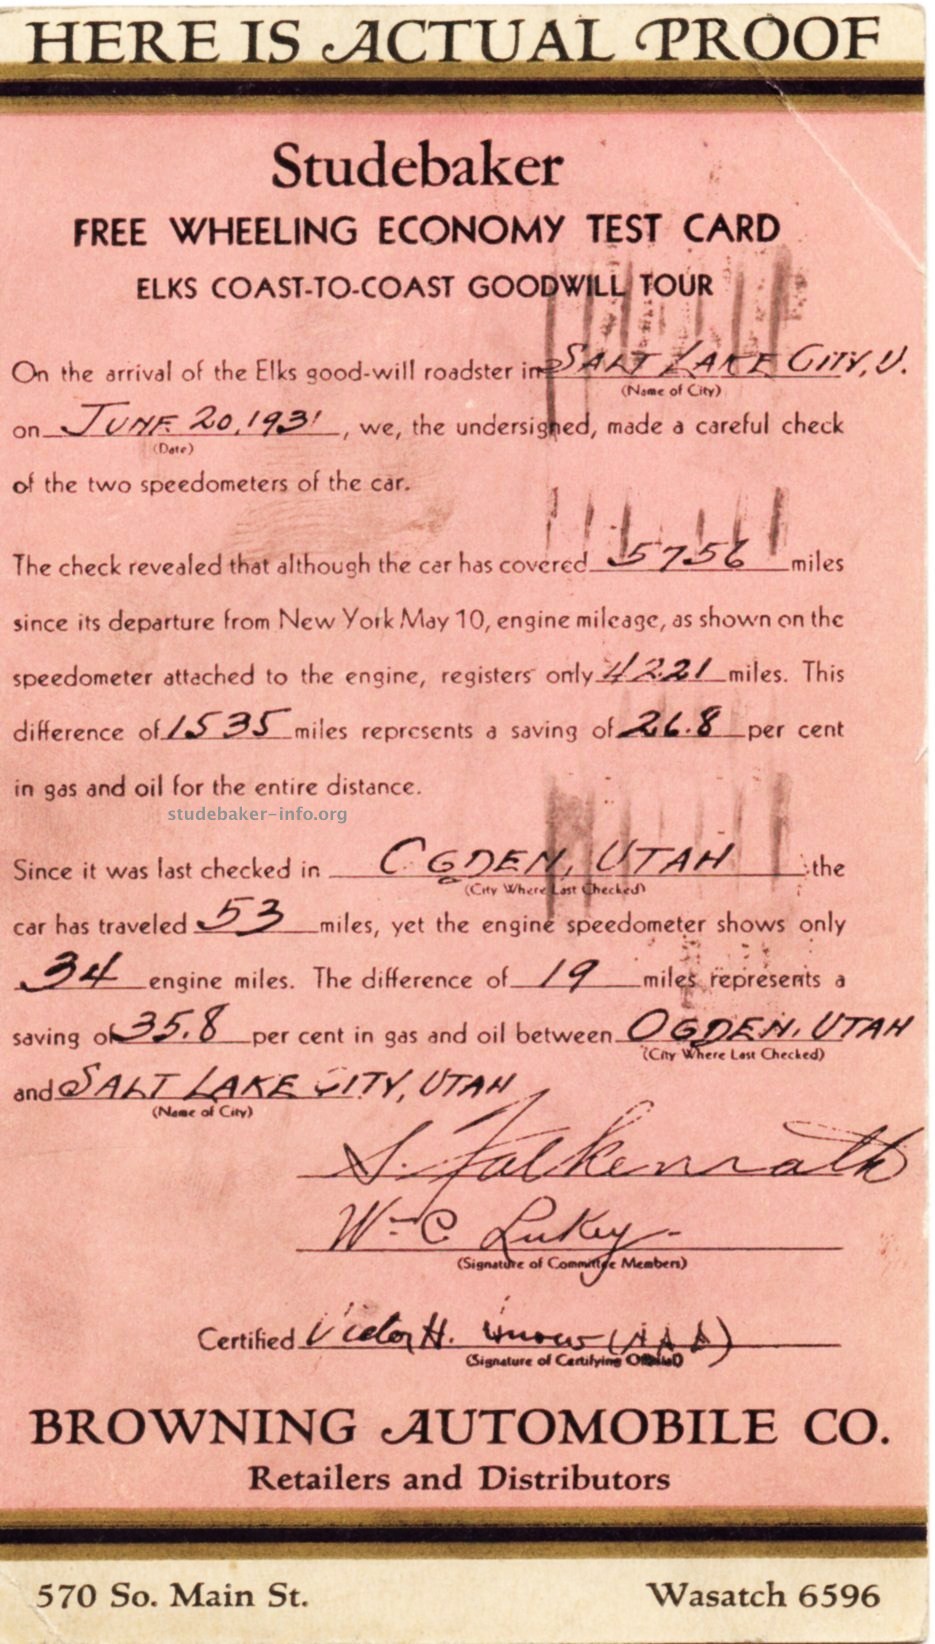 HERE IS ACTUAL PROOF
Studebaker
FREE WHEELING ECONOMY TEST CARD
ELKS COAST-TO-COAST GOODWILL TOUR
On the arrival of the Elks good-will roadster in SALT LAKE CITY, U.
(Name of City)
on JUNE 20, 1931, we, the undersigned, made a careful check
(Date)
of the two speedometers of the car.
The check revealed that although the car has covered 5756 miles
since its departure from New York May 10, engine mileage, as shown on the
speedometer attached to the engine, registers only 4221 miles. This
difference of 1535 miles represents a saving of 26.8 per cent
in gas and oil for the entire distance.
studebaker-info.org
Since it was last checked in OGDEN, UTAH the
(City Where Last Checked)
car has traveled 53 miles, yet the engine speedometer shows only
34 engine miles. The difference of 19 miles represents a
saving of 35.8 per cent in gas and oil between OGDEN, UTAH
(City Where Last Checked)
and SALT LAKE CITY, UTAH
(Name of City)
S. Falkenrath
W-C Lukey
(Signature of Committee Members)
Certified Victor H.
(Signature of Certifying Official)
BROWNING AUTOMOBILE CO.
Retailers and Distributors
570 So. Main St. Wasatch 6596